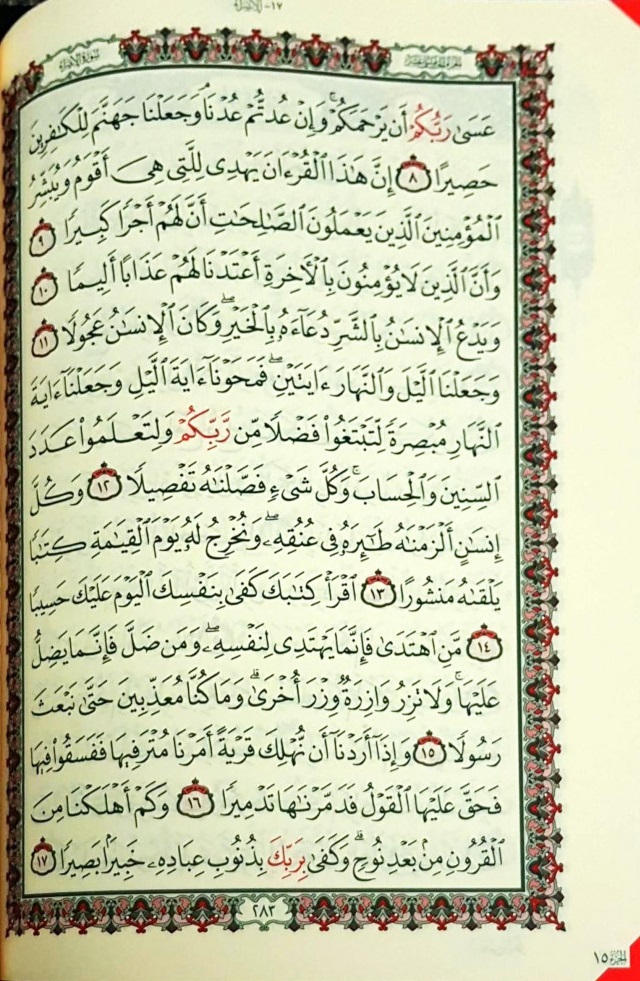 ١٧- الإسراء
سورة الإسراء
عَسَىٰ رَبُّكُمْ أَن يَرْحَمَكُمْ ۚ وَإِنْ عُدتُّمْ عُدْنَا ۘ وَجَعَلْنَا جَهَنَّمَ لِلْكَٰفِرِينَ
حَصِيرًا ٨ إِنَّ هَٰذَا ٱلْقُرْءَانَ يَهْدِى لِلَّتِى هِىَ أَقْوَمُ وَيُبَشِّرُ
ٱلْمُؤْمِنِينَ ٱلَّذِينَ يَعْمَلُونَ ٱلصَّٰلِحَٰتِ أَنَّ لَهُمْ أَجْرًا كَبِيرًا ٩
وَأَنَّ ٱلَّذِينَ لَا يُؤْمِنُونَ بِٱلْءَاخِرَةِ أَعْتَدْنَا لَهُمْ عَذَابًا أَلِيمًا ١٠
وَيَدْعُ ٱلْإِنسَٰنُ بِٱلشَّرِّ دُعَآءَهُۥ بِٱلْخَيْرِ ۖ وَكَانَ ٱلْإِنسَٰنُ عَجُولًا ١١
وَجَعَلْنَا ٱلَّيْلَ وَٱلنَّهَارَ ءَايَتَيْنِ ۖ فَمَحَوْنَآ ءَايَةَ ٱلَّيْلِ وَجَعَلْنَآ ءَايَةَ
ٱلنَّهَارِ مُبْصِرَةً لِّتَبْتَغُوا۟ فَضْلًا مِّن رَّبِّكُمْ وَلِتَعْلَمُوا۟ عَدَدَ
ٱلسِّنِينَ وَٱلْحِسَابَ ۚ وَكُلَّ شَىْءٍ فَصَّلْنَٰهُ تَفْصِيلًا ١٢ وَكُلَّ
إِنسَٰنٍ أَلْزَمْنَٰهُ طَٰٓئِرَهُۥ فِى عُنُقِهِۦ ۖ وَنُخْرِجُ لَهُۥ يَوْمَ ٱلْقِيَٰمَةِ كِتَٰبًا
يَلْقَىٰهُ مَنشُورًا ١٣ ٱقْرَأْ كِتَٰبَكَ كَفَىٰ بِنَفْسِكَ ٱلْيَوْمَ عَلَيْكَ حَسِيبًا
١٤ مَّنِ ٱهْتَدَىٰ فَإِنَّمَا يَهْتَدِى لِنَفْسِهِۦ ۖ وَمَن ضَلَّ فَإِنَّمَا يَضِلُّ
عَلَيْهَا ۚ وَلَا تَزِرُ وَازِرَةٌ وِزْرَ أُخْرَىٰ ۗ وَمَا كُنَّا مُعَذِّبِينَ حَتَّىٰ نَبْعَثَ
رَسُولًا ١٥ وَإِذَآ أَرَدْنَآ أَن نُّهْلِكَ قَرْيَةً أَمَرْنَا مُتْرَفِيهَا فَفَسَقُوا۟ فِيهَا
فَحَقَّ عَلَيْهَا ٱلْقَوْلُ فَدَمَّرْنَٰهَا تَدْمِيرًا ١٦ وَكَمْ أَهْلَكْنَا مِنَ
ٱلْقُرُونِ مِنۢ بَعْدِ نُوحٍ ۗ وَكَفَىٰ بِرَبِّكَ بِذُنُوبِ عِبَادِهِۦ خَبِيرًۢا بَصِيرًا ١٧
٢٨٣
الجزء ١٥